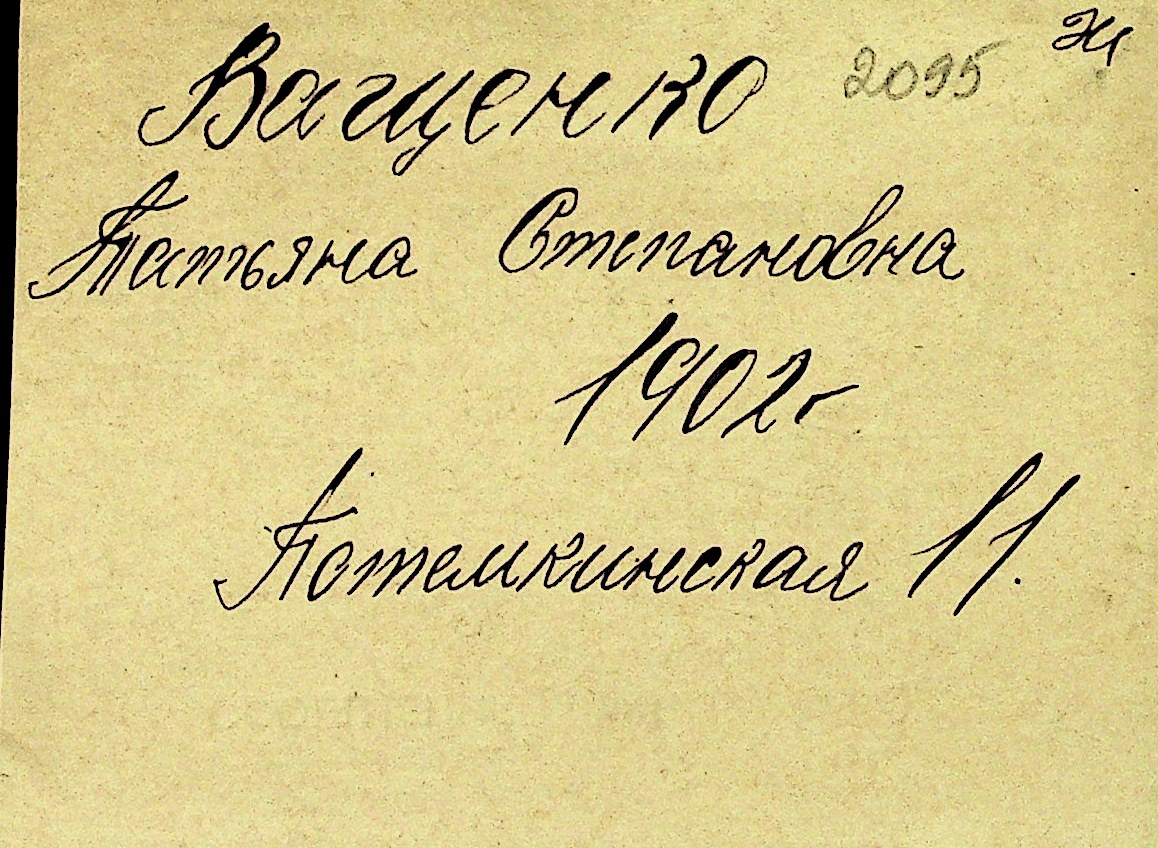 Ващенко 2095 Ж
Татьяна Степановна
1902г
Потемкинская 11.